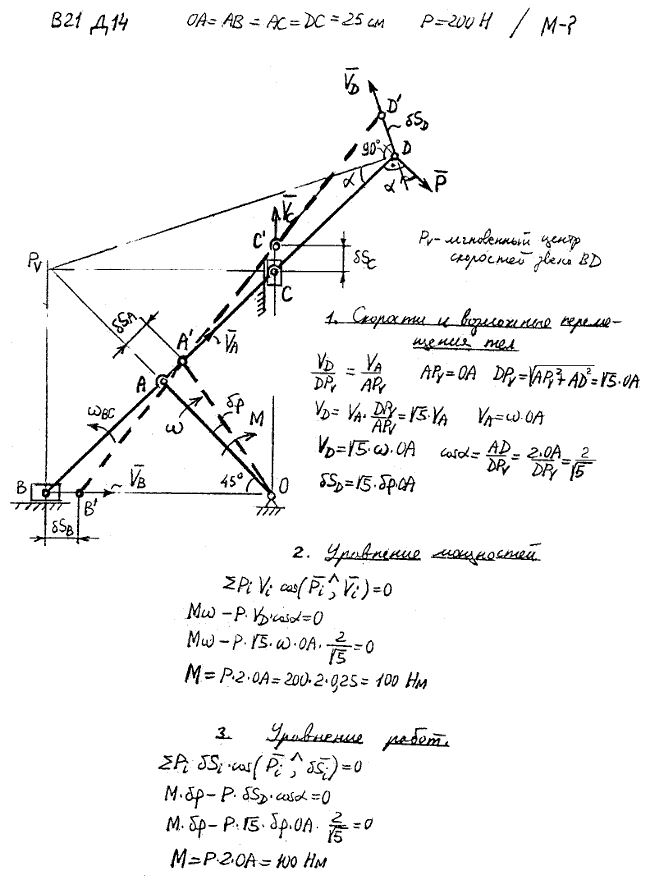 В21 Д14 OA = AB = AC = DC = 25 см P = 200 Н / М-?
V̄D
D'
δSD
90°
D
α
α
P̄
V̄C
C'
δSC
C
PV
PV - мгновенный центр
скоростей звена BD
δSA
A'
V̄A
A
ωBC
ω
δφ
M
45°
O
B
B'
V̄B
δSB
1. Скорости и возможные переме-
щения тел
VD/DPV = VA/APV APV = OA DPV = √(APV² + AD²) = √5·OA
VD = VA·DPV/APV = √5·VA VA = ω·OA
VD = √5·ω·OA cosα = AD/DPV = 2·OA/DPV = 2/√5
δSD = √5·δφ·OA
2. Уравнение мощностей
ΣPi Vi cos(P̄i ^, V̄i) = 0
Mω − P·VD·cosα = 0
Mω − P·√5·ω·OA·2/√5 = 0
M = P·2·OA = 200·2·0,25 = 100 Нм
3. Уравнение работ.
ΣPi·δSi·cos(P̄i ^, δS̄i) = 0
M·δφ − P·δSD·cosα = 0
M·δφ − P·√5·δφ·OA·2/√5 = 0
M = P·2·OA = 100 Нм